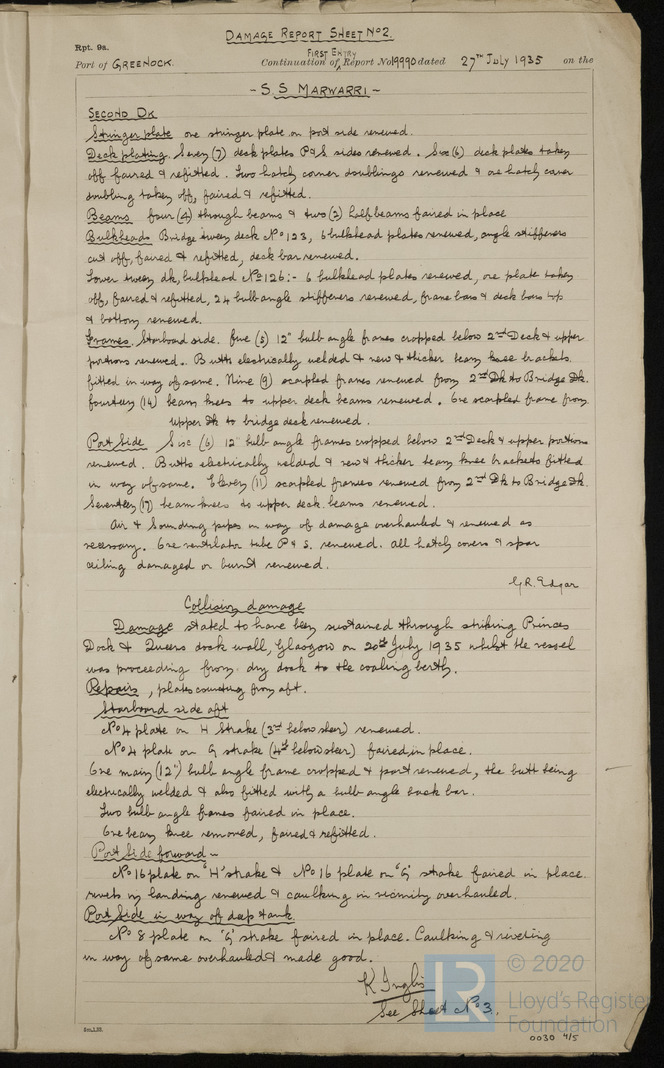 DAMAGE REPORT SHEET No 2.
Rpt. 9a.
FIRST ENTRY
Port of GREENOCK. Continuation of Report No 19990 dated 27TH July 1935 on the
- S.S MARWARRI -
SECOND DK
Stringer plate one stringer plate on port side renewed.
Deck plating. Seven (7) deck plates P & S. sides renewed. Six (6) deck plates taken
off faired & refitted. Two hatch corner doublings renewed & one hatch corner
doubling taken off, faired & refitted.
Beams four (4) through beams & two (2) half beams faired in place
Bulkheads Bridge tween deck No 123, 6 bulkhead plates renewed, angle stiffeners
cut off, faired & refitted, deck bar renewed.
Lower tween dk, bulkhead No 126:- 6 bulkhead plates renewed, one plate taken
off, faired & refitted, 24 bulb angle stiffeners renewed, frame bars & deck bars top
& bottom renewed.
Frames. Starboard side. five (5) 12" bulb angle frames cropped below 2nd Deck & upper
portions renewed. Butts electrically welded & new & thicker beam knee brackets
fitted in way of same. Nine (9) scarphed frames renewed from 2nd Dk to Bridge Dk.
fourteen (14) beam knees to upper deck beams renewed. One scarphed frame from
upper Dk to bridge deck renewed.
Port Side Six (6) 12" bulb angle frames cropped below 2nd Deck & upper portions
renewed. Butts electrically welded & new & thicker beam knee brackets fitted
in way of same. Eleven (11) scarphed frames renewed from 2nd Dk to Bridge Dk.
Seventeen (17) beam knees to upper deck beams renewed.
Air & Sounding pipes in way of damage overhauled & renewed as
necessary. One ventilator tube P & S. renewed. All hatch covers & spar
ceiling damaged or burnt renewed.
G.R. Edgar
Collision damage
Damage stated to have been sustained through striking Princes
Dock & Queens dock wall, Glasgow on 20th July 1935 whilst the vessel
was proceeding from dry dock to the coaling berth.
Repairs, plates counting from aft.
Starboard side aft
No 4 plate on H Strake (3rd below sheer) renewed.
No 4 plate on G strake (4th below sheer) faired in place.
One main (12") bulb angle frame cropped & part renewed, the butt being
electrically welded & also fitted with a bulb angle back bar.
Two bulb angle frames faired in place.
One beam knee removed, faired & refitted.
Port Side forward -
No 16 plate on "H" strake & No 16 plate on "G" strake faired in place
rivets in landing renewed & caulking in vicinity overhauled.
Port Side in way of deep tank
No 8 plate on "G" strake faired in place. Caulking & riveting
in way of same overhauled & made good.
K Inglis
See Sheet No 3.
© 2020
LR
Lloyd's Register
Foundation
0030 4/5